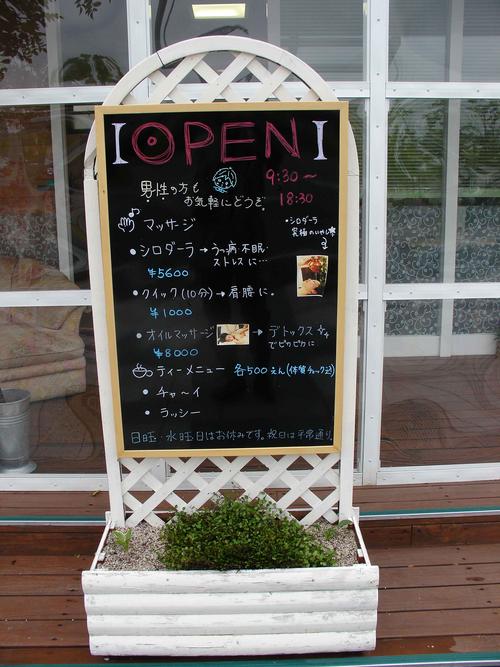 OPEN
9:30〜
18:30
男性の方も
お気軽にどうぞ。
マッサージ
・シロダーラ
究極のいやし
・シロダーラ→うつ病・不眠・
ストレスに…
¥5600
・クイック(10分)→肩腰に。
¥1000
・オイルマッサージ→デトックス
でピカピカに
¥8000
ティーメニュー 各500えん(体質チェック込)
・チャーイ
・ラッシー
日曜・水曜日はお休みです。祝日は平常通り